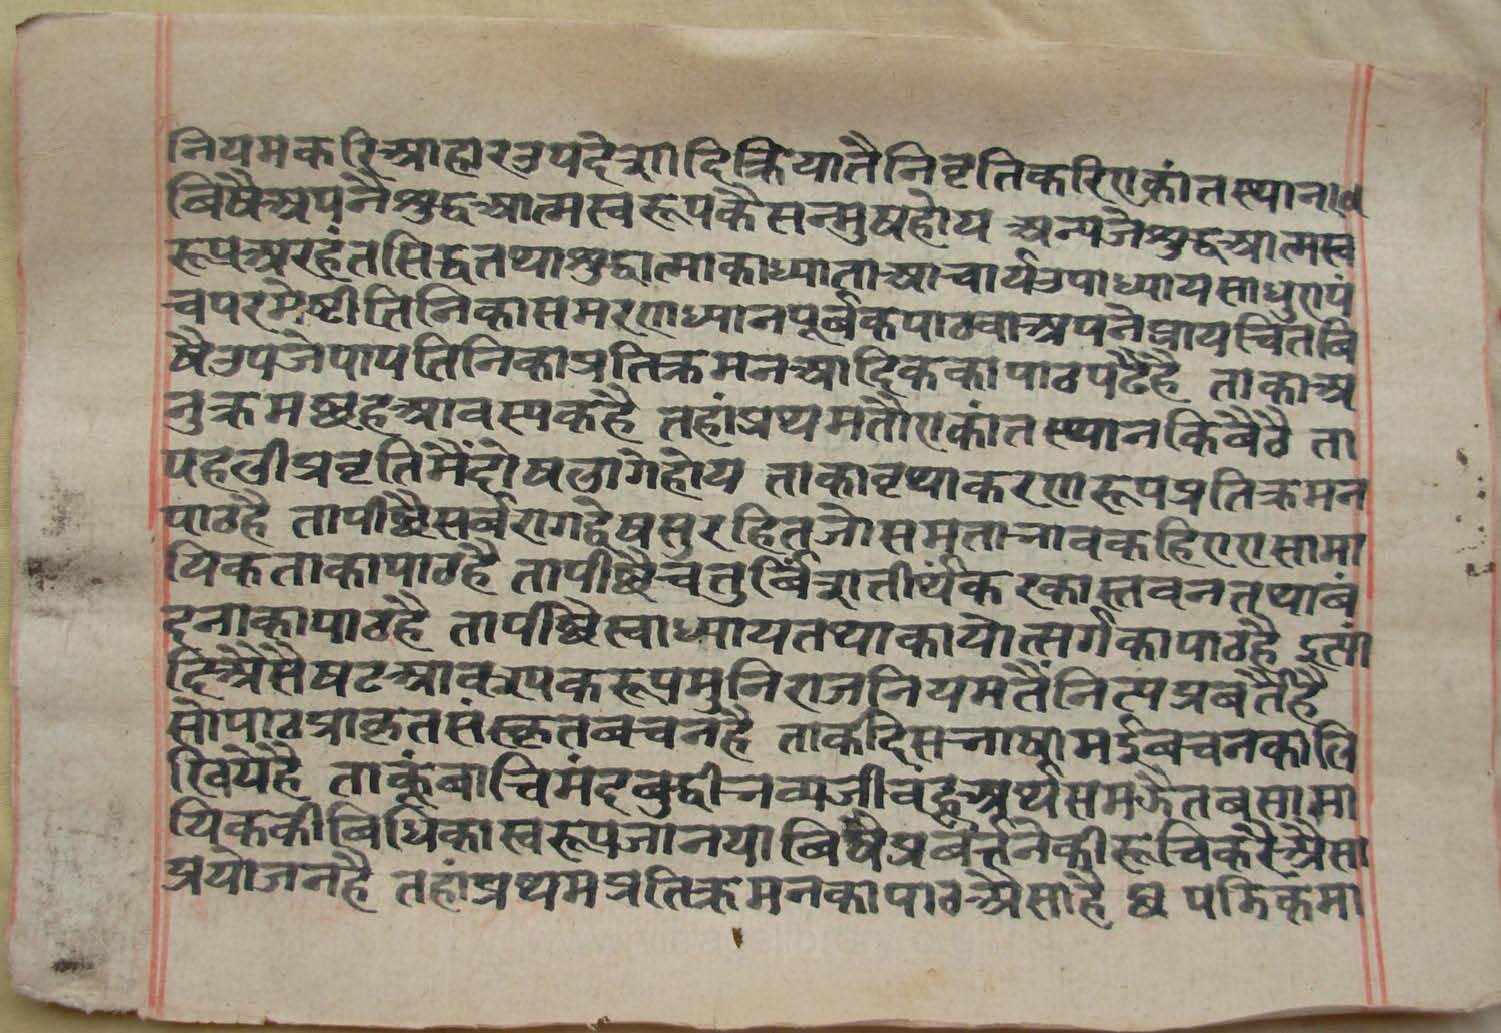 नियमकरिआहारउपदेशादिक्रियातैनिवृतिकरिएकांतस्थान
बिषैअपनैशुद्धआत्मस्वरूपकैसन्मुषहोय अन्यजेशुद्धआत्मस्व
रूपअरहंतसिद्धतथाशुद्धात्माकाध्याताआचार्यउपाध्यायसाधुएपं
चपरमेष्टीतिनिकासमरणध्यानपूर्बकपाठवाअपनैप्रायचितबि
षैउपजेपापतिनिकाप्रतिक्रमनआदिककापाठपढैहै ताकाअ
नुक्रमछहआवस्यकहै तहांप्रथमतौएकांतस्थानकिबैठै ता
पहलीप्रवृतिमैंदोषलागेहोय ताकावृथाकरणरूपप्रतिक्रमन
पाठहै तापीछैसर्बरागद्वेषसुरहितजोसमताभावकहिएएसामा
यिकताकापाठहै तापीछैचतुर्बिंशतीर्थंकरकास्तवनतथाबं
दनाकापाठहै तापीछैस्वाध्यायतथाकायोत्सर्गकापाठहै इत्यां
दिअैसैषटआवश्यकरूपमुनिराजनियमतैंनित्यप्रबर्तैहै
सोपाठप्राकृतसंस्कृतबचनहै ताकीदेसभाषामईबचनकालि
खियैहै ताकूंबाचिमंदबुद्धीभव्यजीवंहुअर्थसमझैतबसामा
यिककीबिधिकास्वरूपजानयाबिषैप्रबर्त्तनेकीरूचिकरैअैसा
प्रयोजनहै तहांप्रथमप्रतिक्रमनकापाठअैसाहै छ पडिकमा